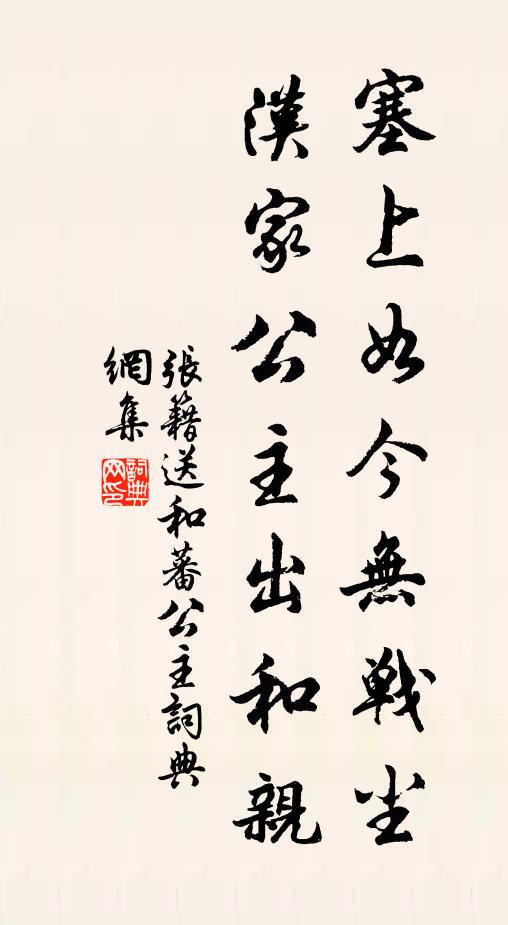 塞上如今無戰尘
漢家公主出和親
張籍送和蕃公主詞典
網集
詞典
网印